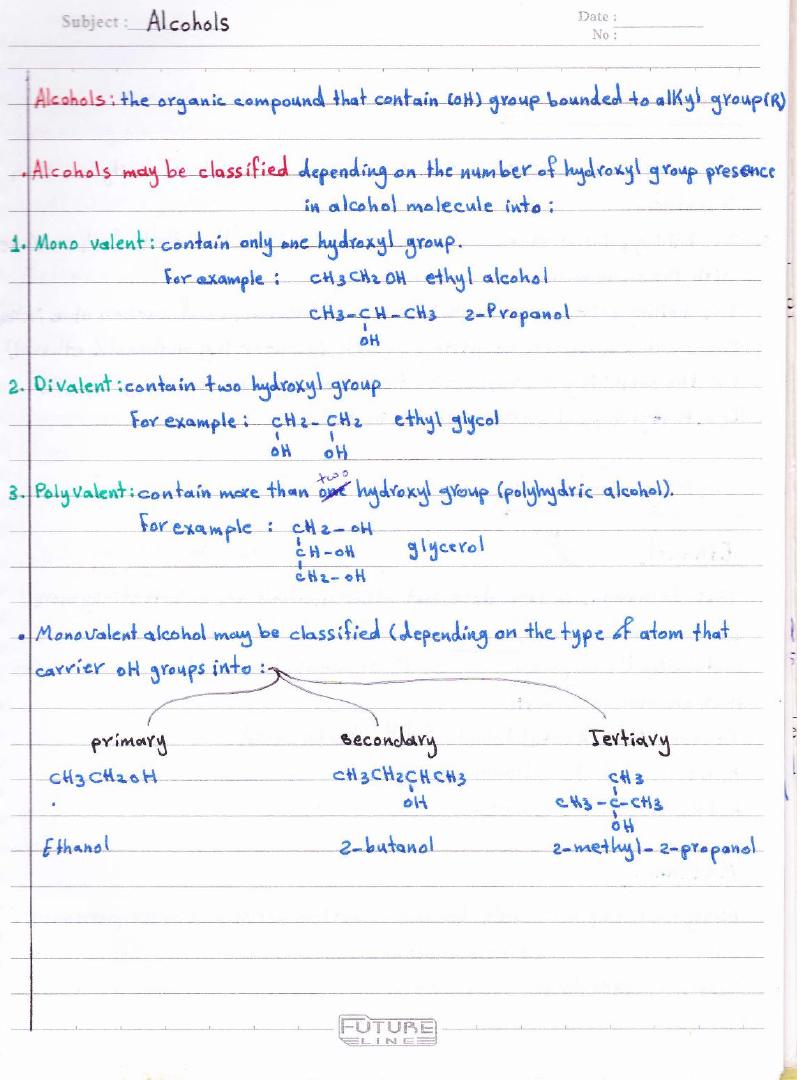 Subject : Alcohols
Date :
No :
Alcohols : the organic compound that contain (OH) group bounded to alkyl group (R)
. Alcohols may be classified depending on the number of hydroxyl group presence
in alcohol molecule into :
1. Mono valent : contain only one hydroxyl group.
For example : CH3CH2OH ethyl alcohol
CH3-CH-CH3 2-Propanol
OH
2. Divalent : contain two hydroxyl group
For example : CH2-CH2 ethyl glycol
OH OH
two
3. Polyvalent : contain more than one hydroxyl group (polyhydric alcohol).
For example : CH2-OH
CH-OH glycerol
CH2-OH
. Monovalent alcohol may be classified (depending on the type of atom that
carrier OH groups into :
primary secondary Tertiary
CH3CH2OH CH3CH2CHCH3 CH3
OH CH3-C-CH3
OH
Ethanol 2-butanol 2-methyl-2-propanol
FUTURE
LINE